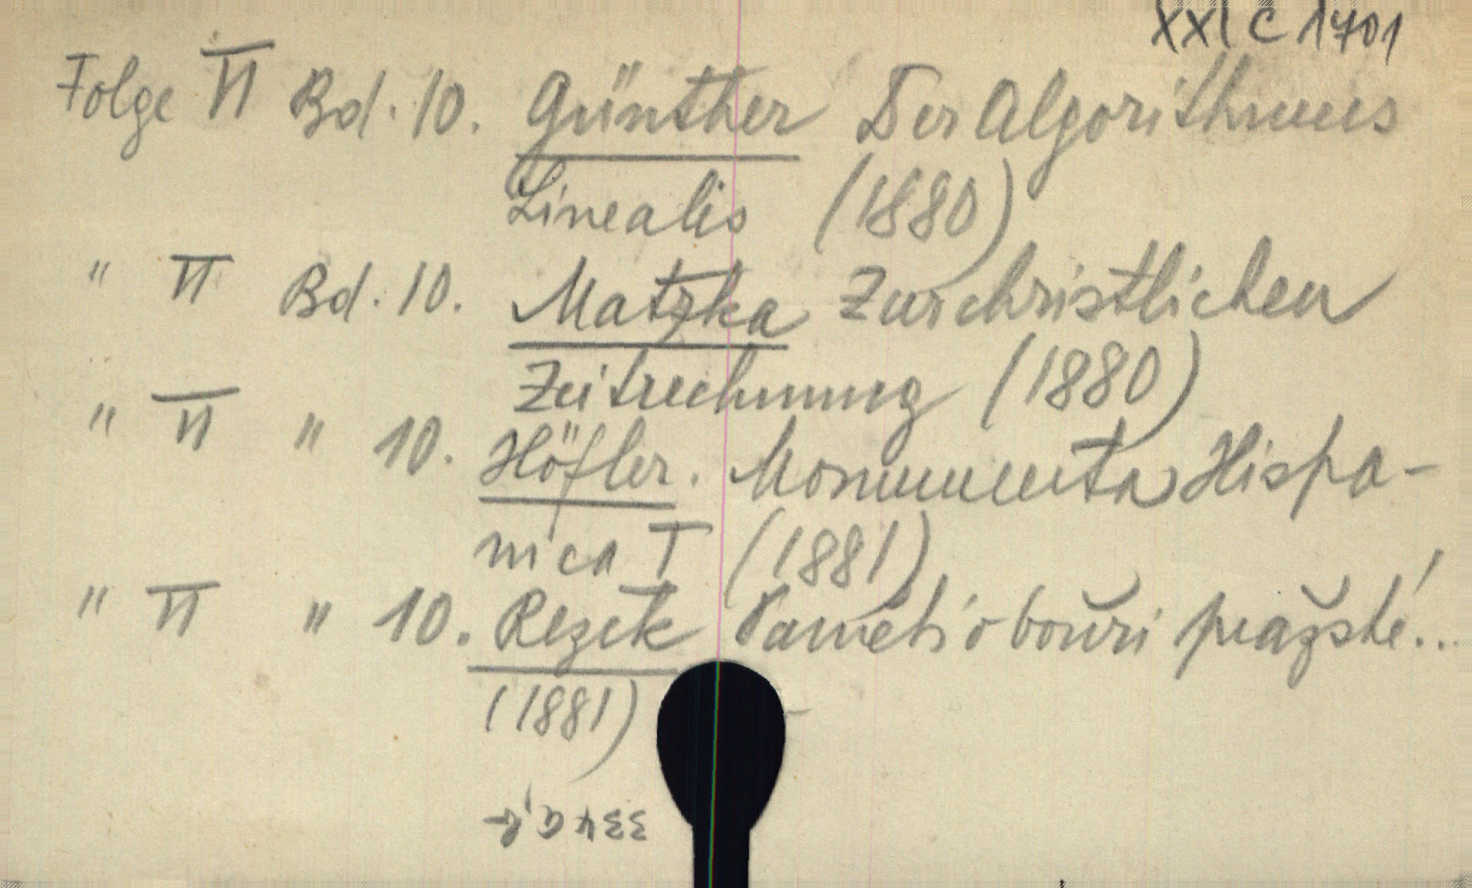 XXI C 1701
Folge VI Bd. 10. Günther Der Algorithmus
Linealis (1880)
" VI Bd. 10. Matzka Zur christlichen
Zeitrechnung (1880)
" VI " 10. Höfler. Monumenta Hispa-
nica I (1881)
" VI " 10. Rezek Paměti o bouři pražské...
(1881)